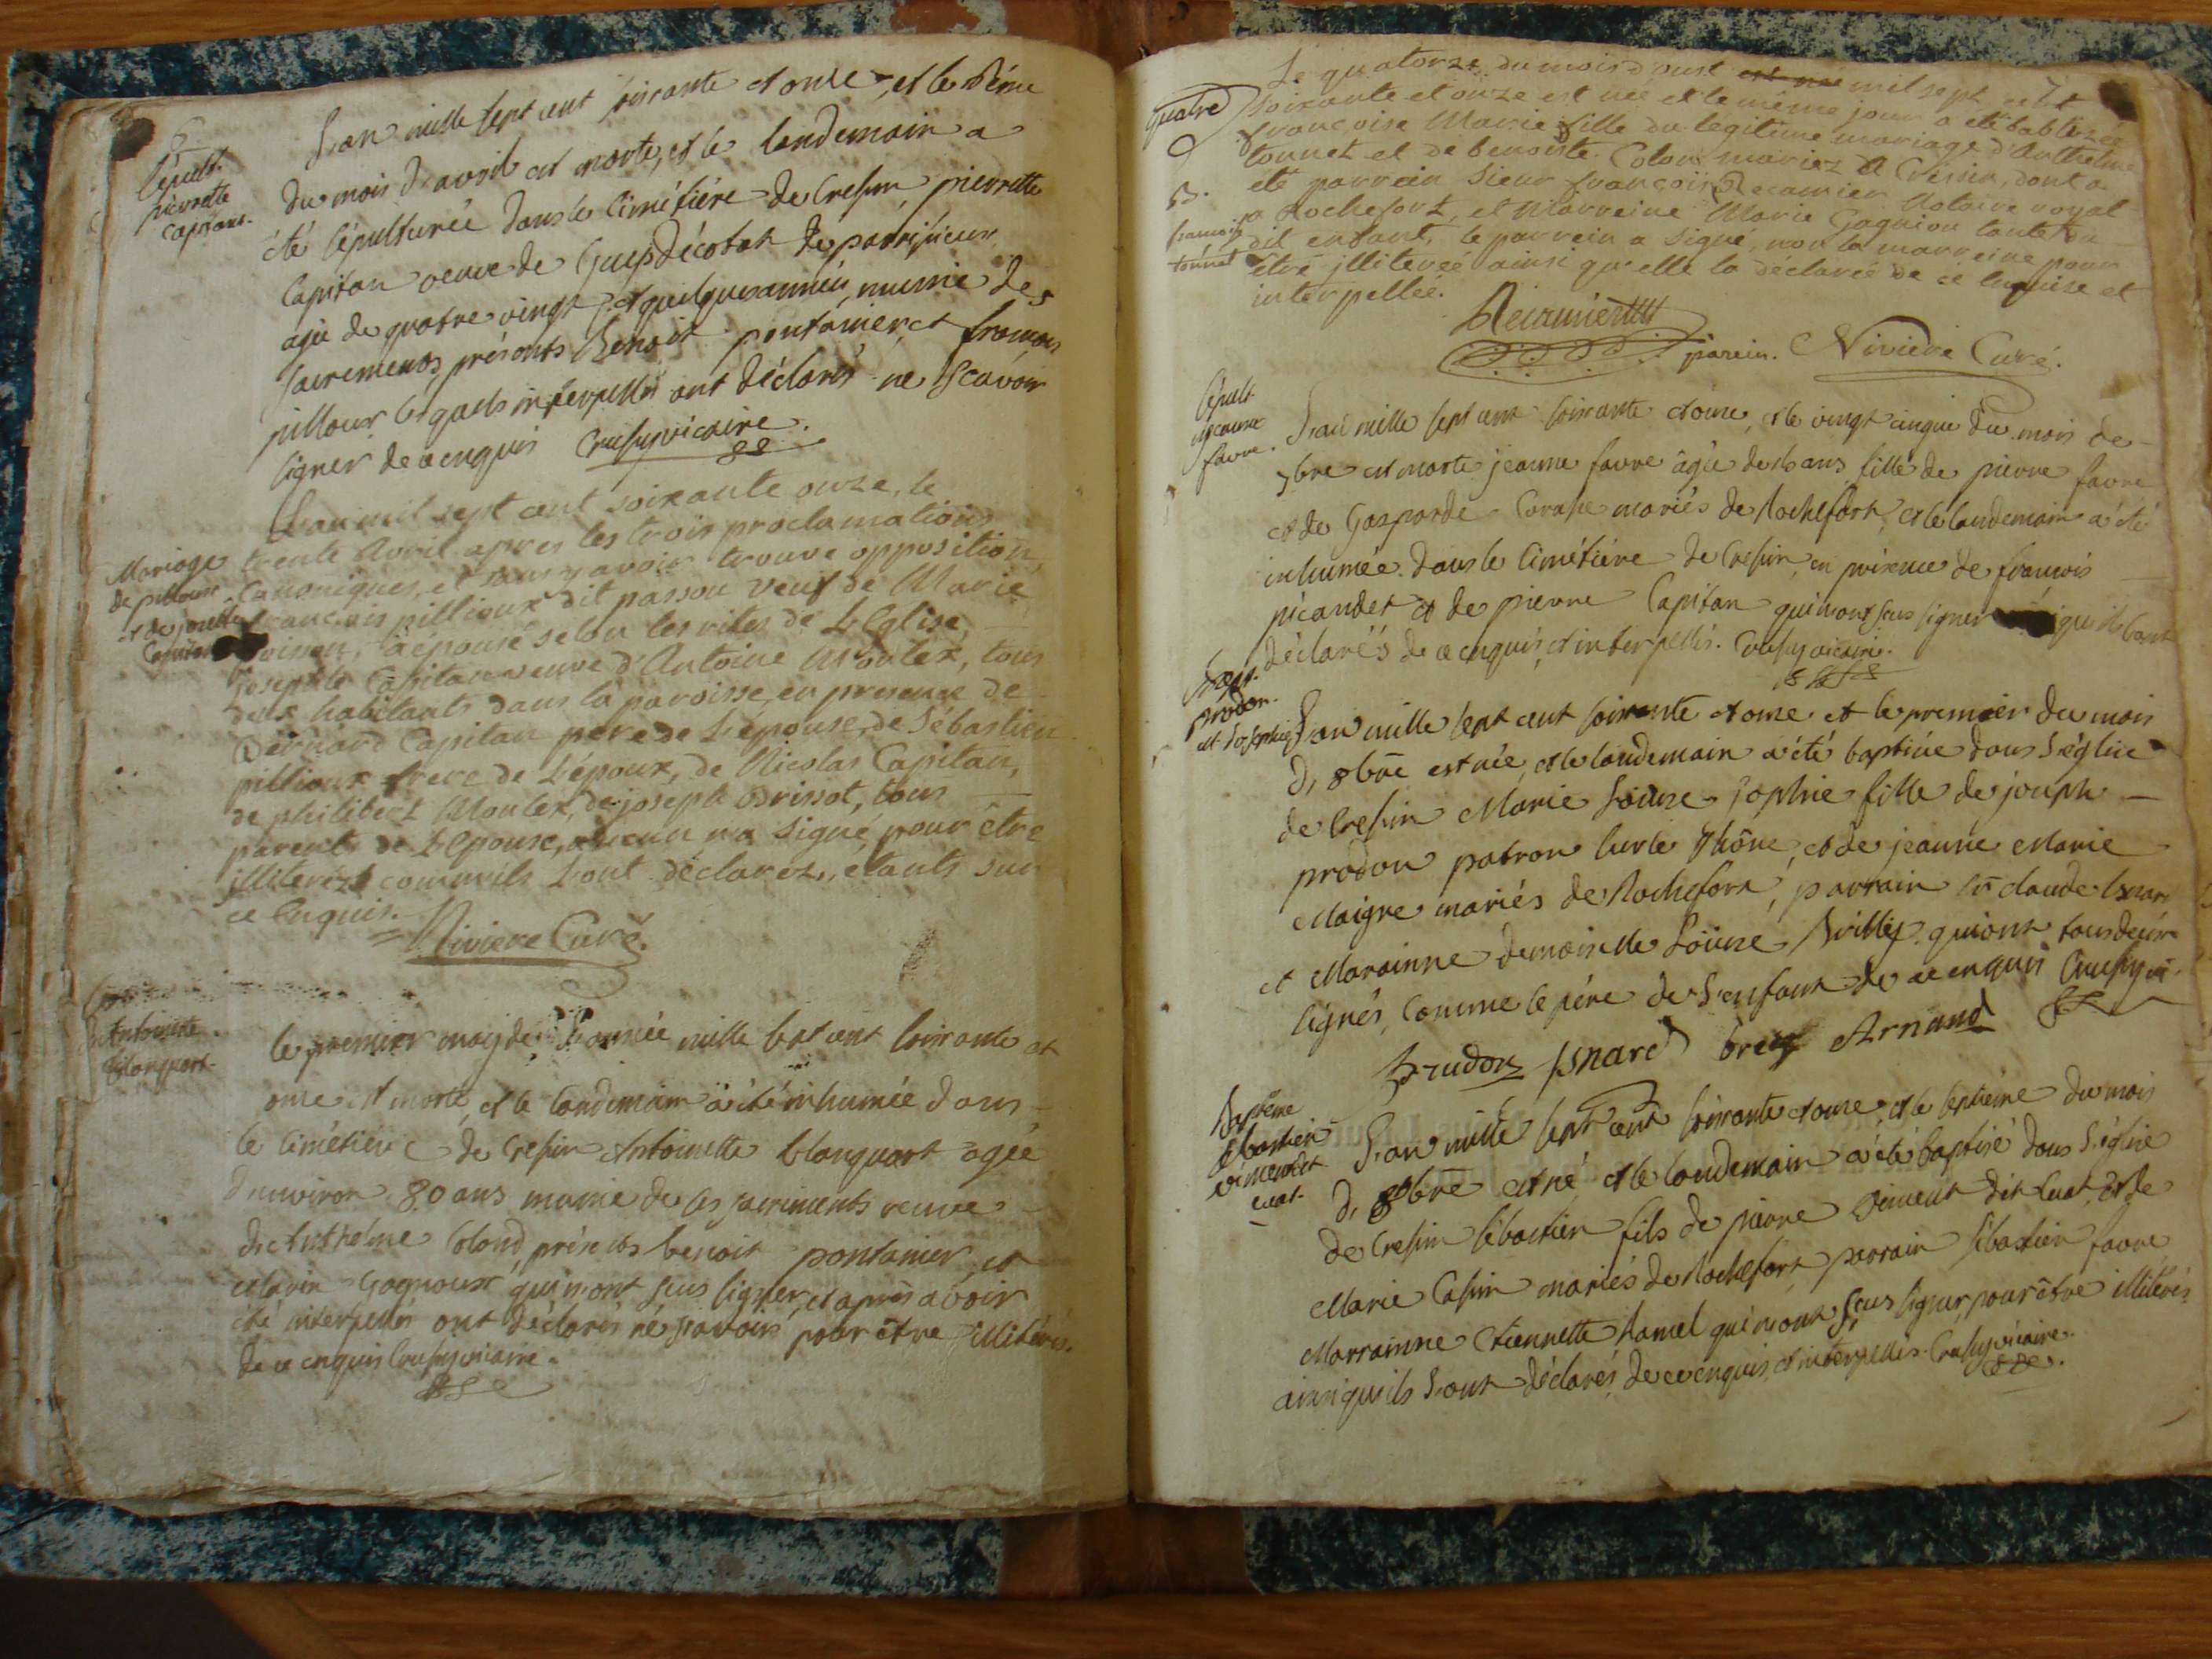 6
Sépult.
pierrette
Capitan.
L'an mille sept cent soixante et onze, et le
du mois d'avril est morte, et le landemain a
été sépulturée dans le cimétiére de Cressin, pierrette
Capitan veuve de
agée de quatre vingt et quelques années, munie des
sacremens, présents Benoit pontanier, et françois
pilloux lesquels interpellés ont déclarés ne sçavoir
signer de ce enquis vicaire.
Mariage
de pilloux
et de josette
Capitan
L'an mil sept cent soixante onze, le
trente avril apres les trois proclamations
Canoniques, et sans y avoir trouvé opposition,
françois pillioux dit passon veuf de Marie
a épousé selon les rites de L'Eglise,
josephte Capitan veuve d'Antoine Moulex, tous
deux habitants dans la paroisse, en presence de
Bernard Capitan pere de L'épouse, de Sébastien
pillioux frere de L'époux, de Nicolas Capitan,
de philibert Moulex, de joseph Brissot, tous
parents de L'Epouse, aucun n'a signé, pour être
illiterez comm'ils L'ont déclarez, étants sur
ce Enquis. Riviere Curé.
Antoinette
Blanquart.
le premier may de L'année mille sept cent soixante et
onze est morte, et le landemain a été inhumée dans
le cimétiére de Cressin Antoinette blanquart agée
d'environ 80 ans munie de ses sacrements veuve
d'Anthelme Colond, présents benoit pontanier, et
Marin Gagnoux qui n'ont sçus signer, et après avoir
été interpellés ont déclarés ne sçavoir pour être illitérés.
de ce enquis vicaire.
7
quatre
B.
francoise
tonnet
Le quatorze du mois d'aust mil sept cent
soixante et onze est née et le même jour a été baptizée
françoise Marie fille du légitime mariage d'Anthelme
tonnet et de benoiste Colon mariez a Cressin, dont a
été parrein Sieur françois Recamier Notaire royal
a Rochefort, et Marreine Marie Gagnion tante du
dit enfant, le parrein a signé, non la marreine pour
être illitereé ainsi qu'elle la déclareé de ce enquise et
interpellée.
Recamier parein. Riviere Curé.
Sépult.
jeanne
favre.
L'an mille sept cent soixante et onze, et le vingt cinque du mois de
7bre est morte jeanne favre âgée de ans fille de pierre favre
et de Gasparde mariés de Rochefort, et le landemain a été
inhumée dans le cimétiére de Cressin, en présence de françois
picandet et de pierre Capitan qui n'ont sçus signer qu'ils l'ont
déclarés de ce enquis, et interpellés. vicaire.
Bapt.
prodon.
L'an mille sept cent soixante et onze et le premier du mois
d'8bre est née, et le landemain a été baptisée dans L'église
de Cressin Marie Loüise Sophie fille de joseph
prodon patron sur le Rhône, et de jeanne Marie
Maigre mariés de Rochefort, parrain Sr claude Isnard
et Marainne demoiselle Loüise qui ont tous deux
signés, comme le pére de L'enfant de ce enquis
prudon Isnard Arnaud
Baptême
sébastien
vement
cuat.
L'an mille sept cent soixante et onze, et le septiéme du mois
d'8bre est né et le landemain a été baptisé dans L'église
de Cressin sébastien fils de pierre vement dit Cuat, et de
Marie Cassin mariés de Rochefort, parrain sébastien favre
Marrainne Etiennette hamel qui n'ont sçus signer, pour être illitérés
ainsi qu'ils L'ont déclarés, de ce enquis, et interpellés. vicaire.